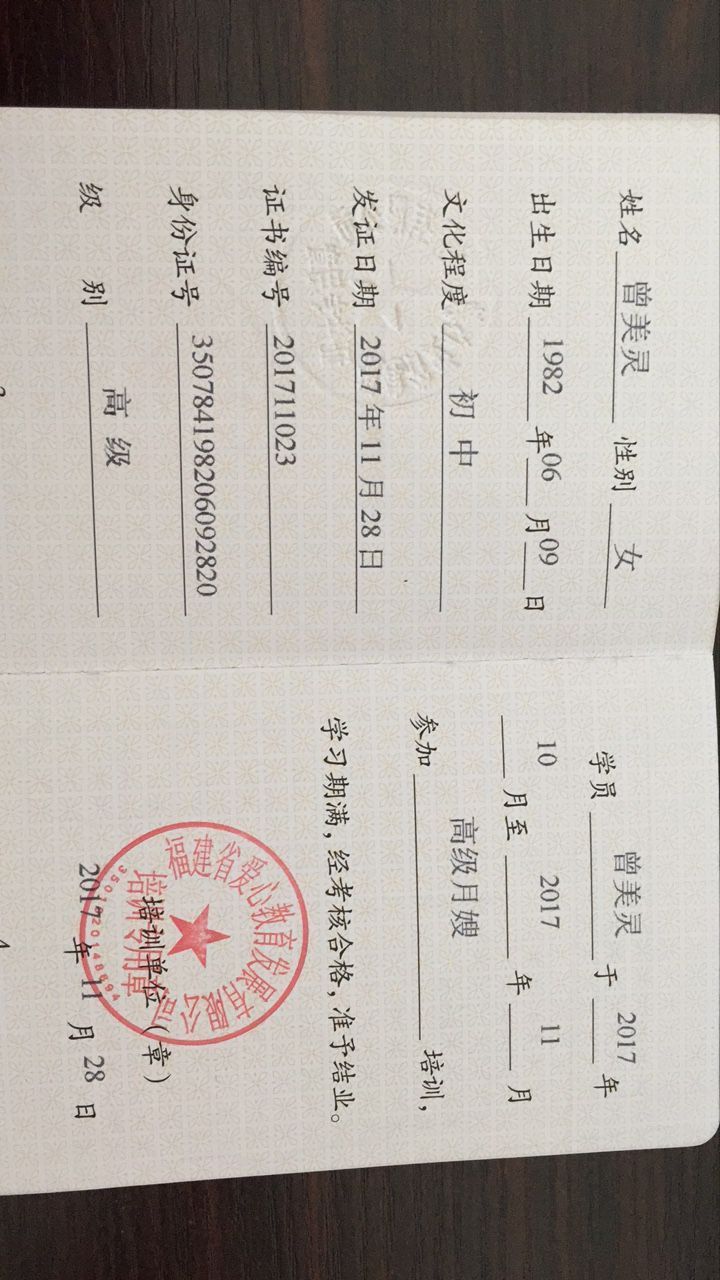 姓名 曾美灵 性别 女
出生日期 1982 年 06 月 09 日
文化程度 初中
发证日期 2017 年 11 月 28 日
证书编号 201711023
身份证号 350784198206092820
级 别 高级
学员 曾美灵 于 2017 年
10 月至 2017 年 11 月
参加 高级月嫂 培训,
学习期满,经考核合格,准予结业。
培训单位(章)
2017 年 11 月 28 日
福建省爱心教育发展有限公司
培训专用章